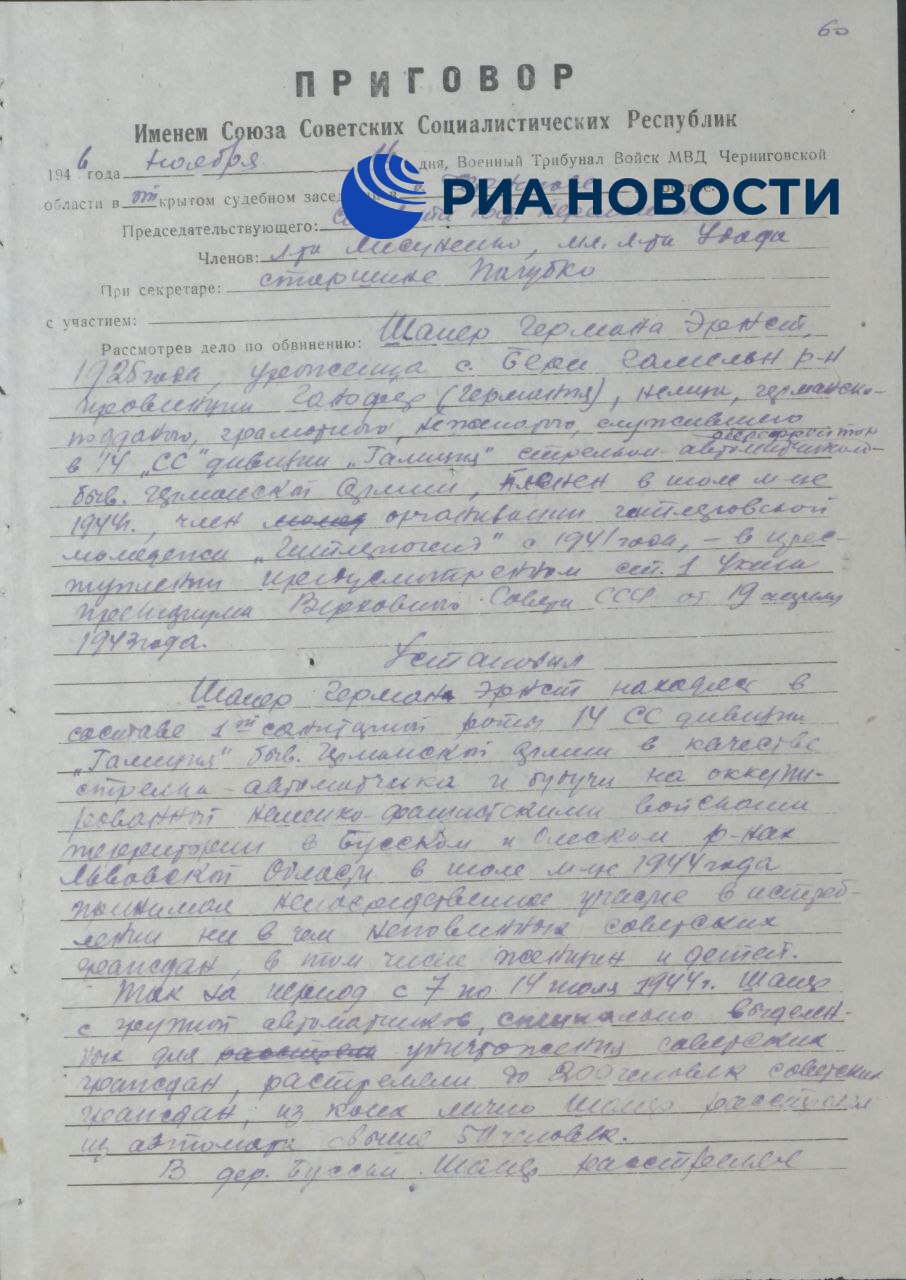 60
ПРИГОВОР
Именем Союза Советских Социалистических Республик
1946 года ноября 16 дня, Военный Трибунал Войск МВД Черниговской
области в открытом судебном
РИА НОВОСТИ
Председательствующего:
Членов: л-та Лисуненко, мл. л-та
При секретаре: старшине Пагубко
с участием:
Рассмотрев дело по обвинению: Шапер Германа Эрнст,
1925 года, уроженца с.
провинции (Германия), немца, германско-
подданого, грамотного, нежена­того, служившего
в 14 „СС" дивизии „Галиция" стрелком-автоматчиком
быв. германской армии, пленен в июле м-це
1944г., член организации гитлеровской
молодежи с 1941 года, – в прес-
туплении предусмотренном ст. 1 Указа
президиума Верховного Совета СССР от 19 апреля
1943 года.
Установил
Шапер Герман Эрнст находясь в
составе 1ой санитарной роты 14 СС дивизии
„Галиция" быв. германской армии в качестве
стрелка-автоматчика и будучи на оккупи-
рованной немецко-фашистскими войсками
территории в Бусском и Олеском р-нах
Львовской Области в июле м-це 1944 года
принимал непосредственное участие в истреб-
лении ни в чем неповинных советских
граждан, в том числе женщин и детей.
Так за период с 7 по 14 июля 1944г. Шапер
с группой автоматчиков, специально выделен-
ных для уничтожения советских
граждан, растреляли до 200 человек советских
граждан, из коих лично Шапер расстрелял
из автомата свыше 50 человек.
В дер. Шапер расстрелял